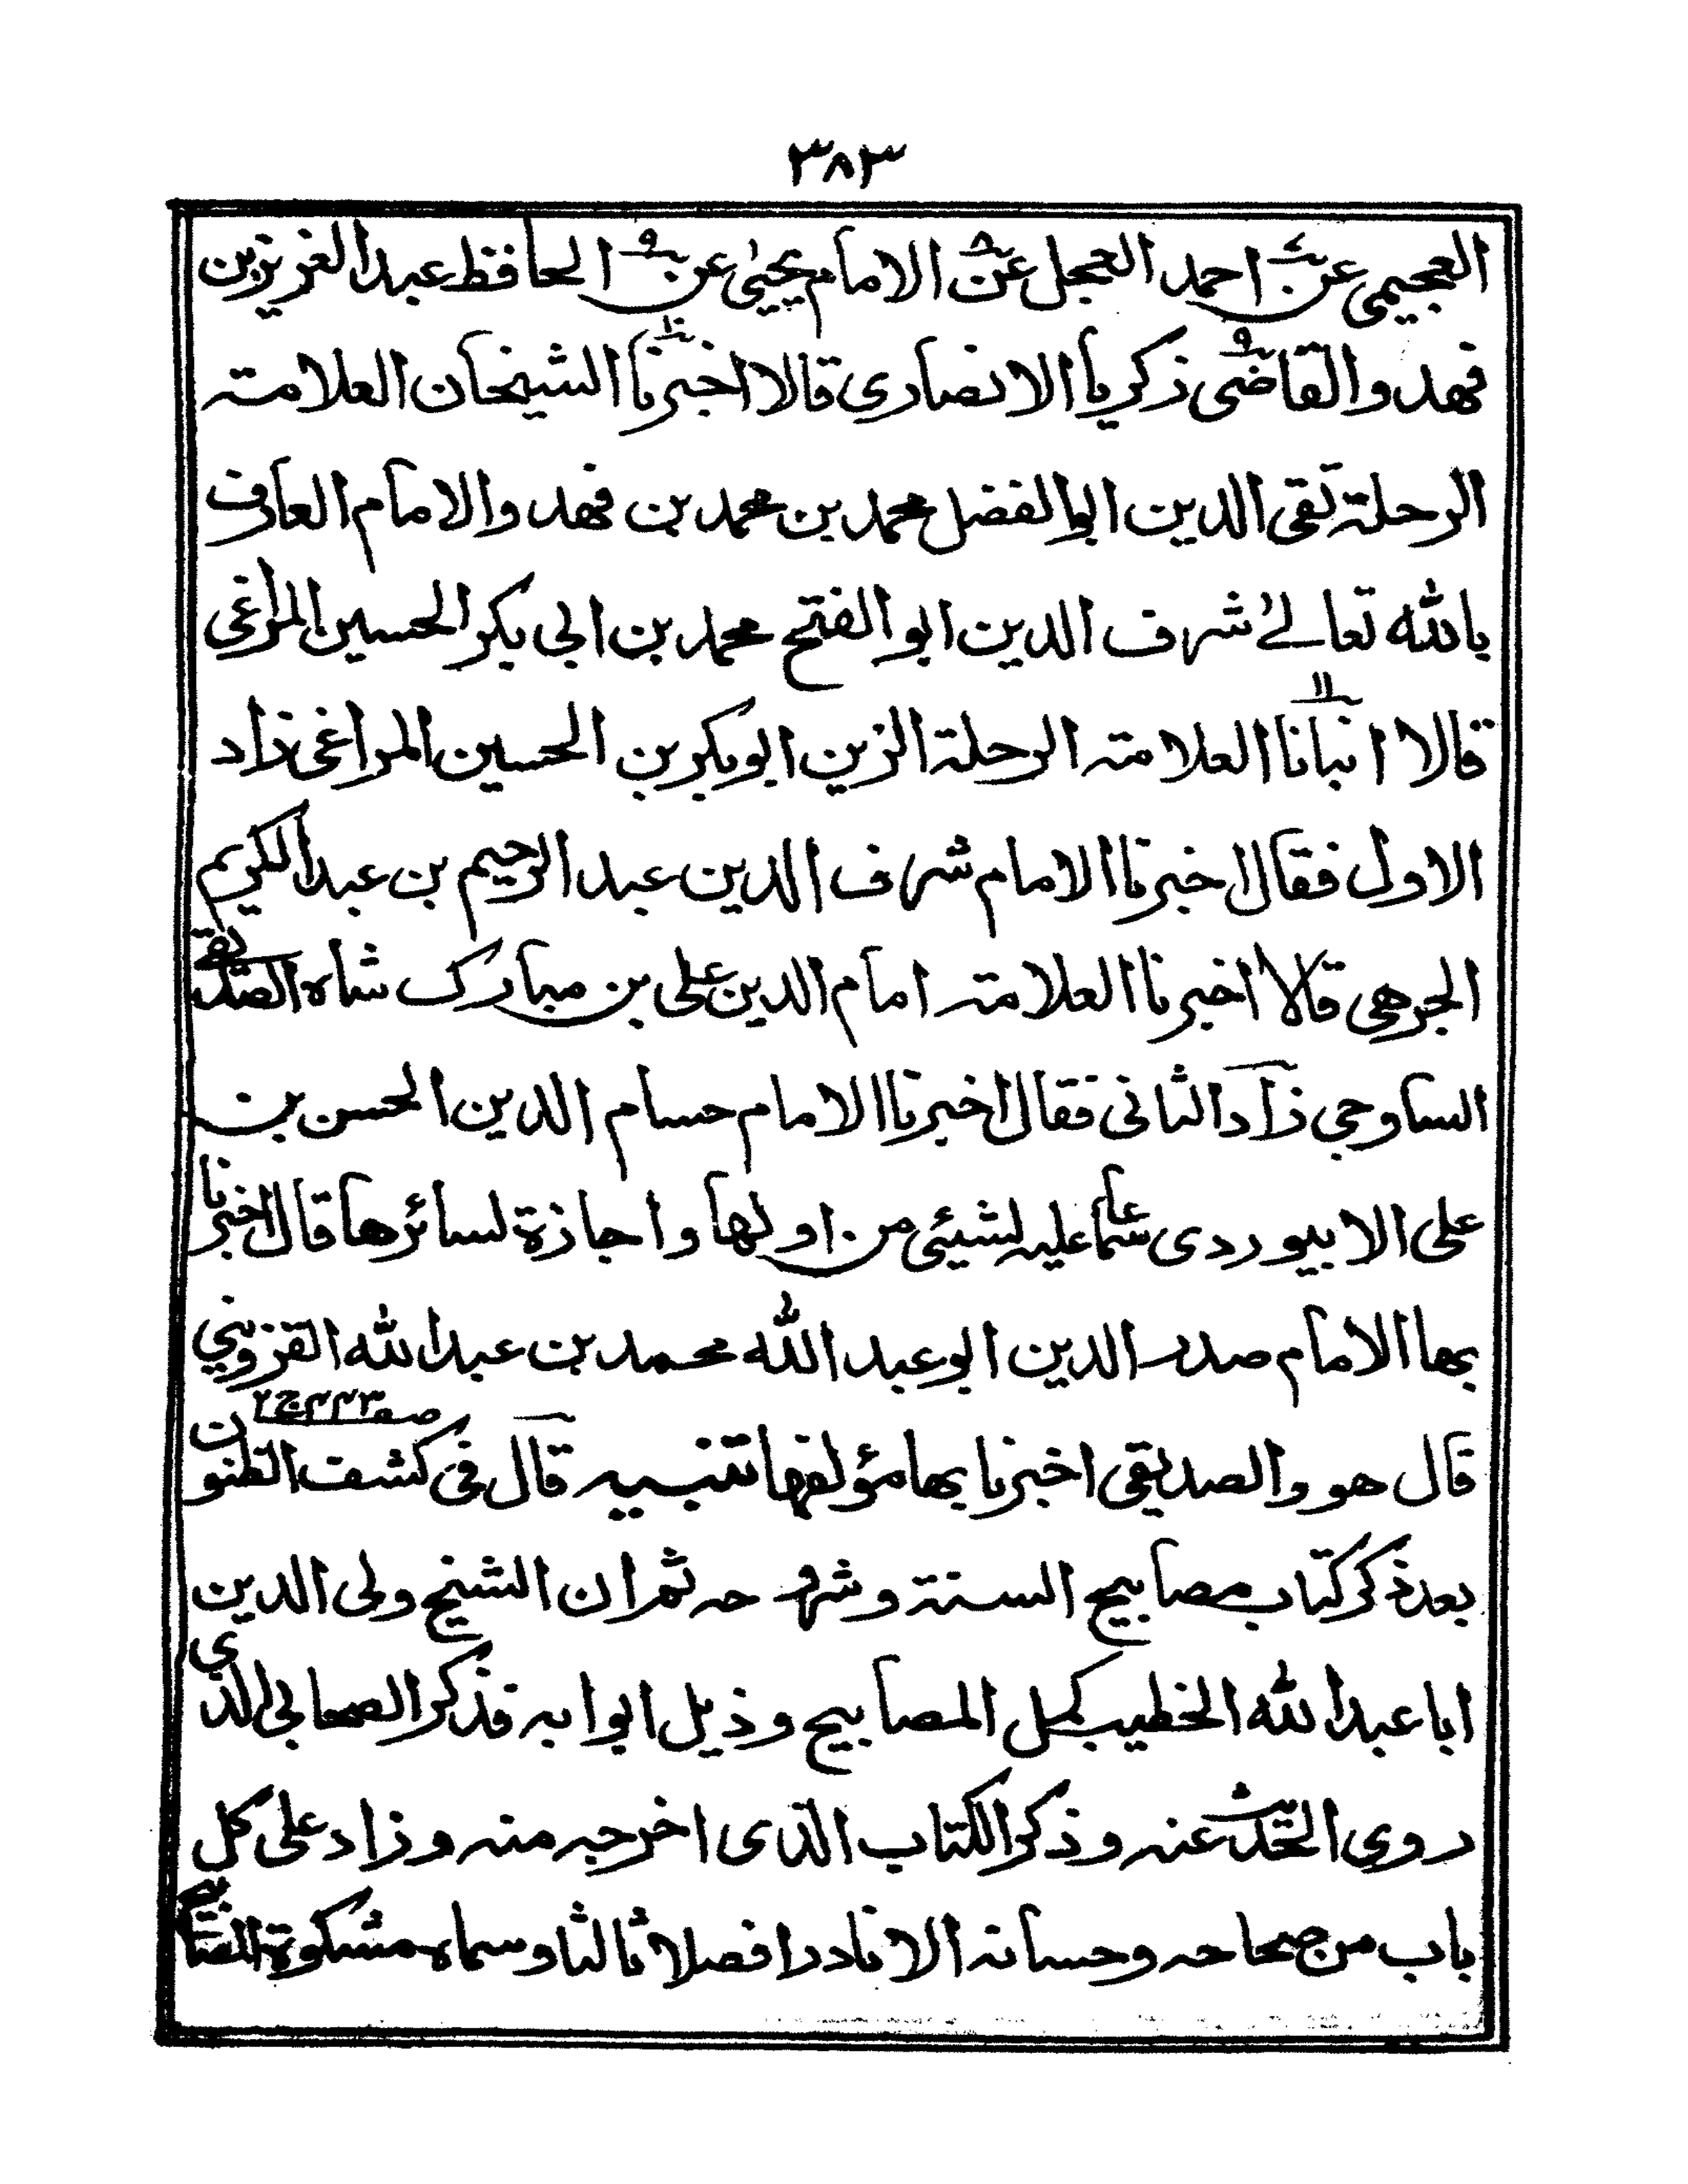 ٣٨٣
العجيمى عن احمد العجل عن الامام يحيىٰ عن الحافظ عبد العزيز بن
فهد والقاضى زكريا الانصارى قالا اخبرنا الشيخان العلامته
الرحلة تقى الدين ابو الفضل محمد بن محمد بن فهد والامام العارف
بالله تعالےٰ شرف الدين ابو الفتح محمد بن ابى بكر الحسين المراغى
قالا انبانا العلامته الرحلة الزين ابو بكر بن الحسين المراغى زاد
الاول فقال اخبرنا الامام شرف الدين عبد الرحيم بن عبد الكريم
الجرهى قالا اخبرنا العلامته امام الدين على بن مبارك شاه الصديقے
الساوجى زاد الثانى فقال اخبرنا الامام حسام الدين الحسن بن
على الابيوردى سماعا عليه لشيئى من اولها واجازة لسائرها قال اخبرنا
بها الامام صدر الدين ابو عبد الله محمد بن عبد الله القزوينى
قال هو والصديقى اخبرنا بها مؤلفها تنبيه قال فى كشف الظنون
بعد ذكر كتاب مصابيح السنة وشروحه ثم ان الشيخ ولى الدين
ابا عبد الله الخطيب كمل المصابيح وذيل ابوابه فذكر الصحابى الذى
روى الحديث عنه وذكر الكتاب الذى اخرجه منه وزاد على كل
باب من صحاحه وحسانه الا نادرا فصلا ثالثا وسماه مشكوة المصابيح